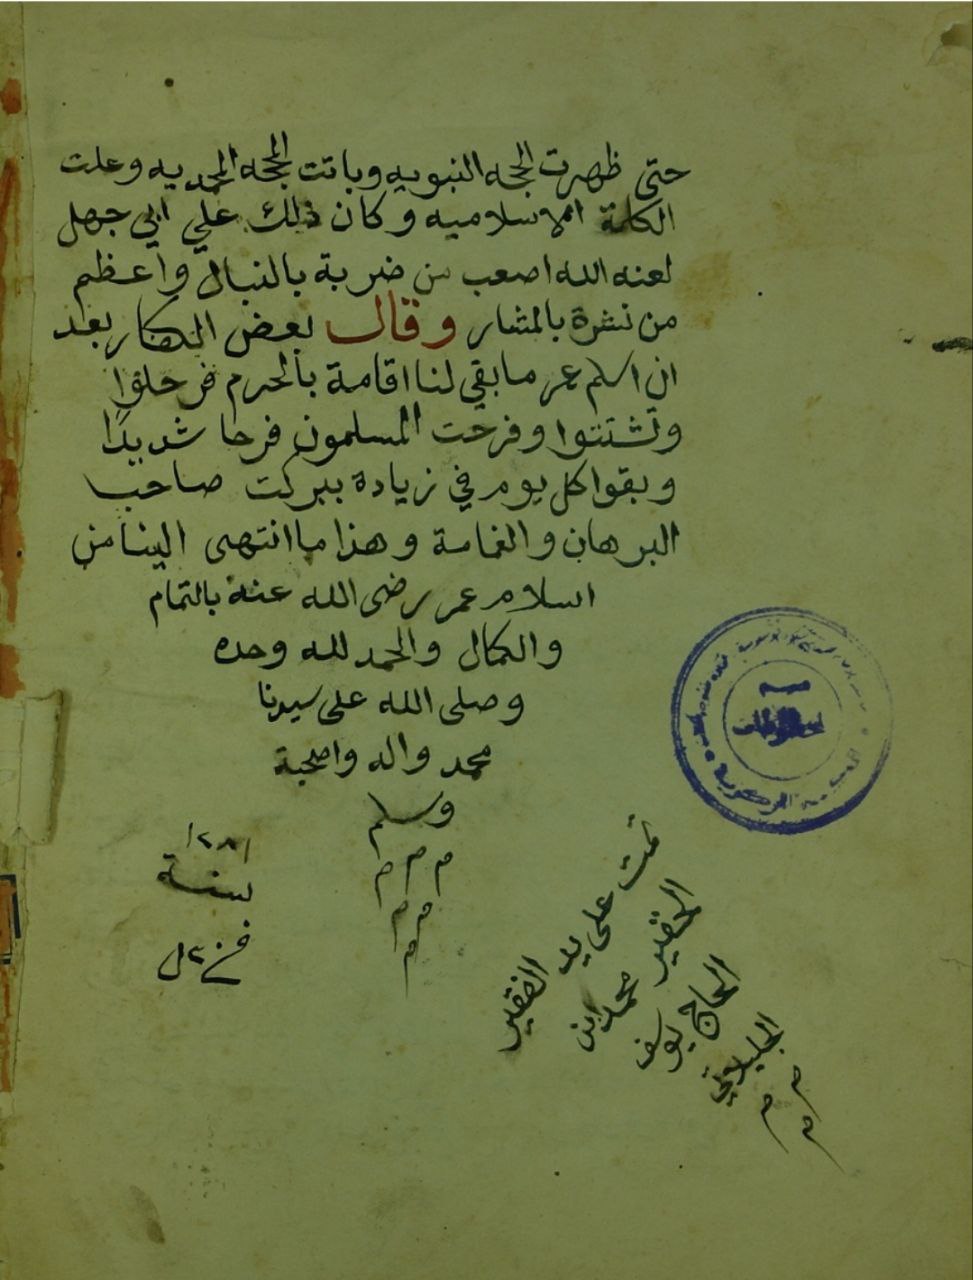 حتى ظهرت الحجه النبويه وباتت المحجه المحمديه وعلت
الكلمة الاسلاميه وكان ذلك علي ابي جهل
لعنه الله اصعب من ضربة بالنبال واعظم
من نشرة بالمشار وقال بعض الكفار بعد
ان اسلم عمر ما بقي لنا اقامة بالحرم فرحلوا
وتشتتوا وفرحت المسلمون فرحا شديدا
وبقوا كل يوم في زيادة ببركت صاحب
البرهان والغمامة وهذا ما انتهى الينا من
اسلام عمر رضى الله عنه بالتمام
والكمال والحمد لله وحده
وصلى الله على سيدنا
محمد واله واصحبة
وسلم
م م م
م م
م
١٢٨١
سنة
تمت على يد الفقير
الحقير محمد ابن
الحاج يوسف
الجليلاتي
م م م
قسم
المخطوطات
المركزية